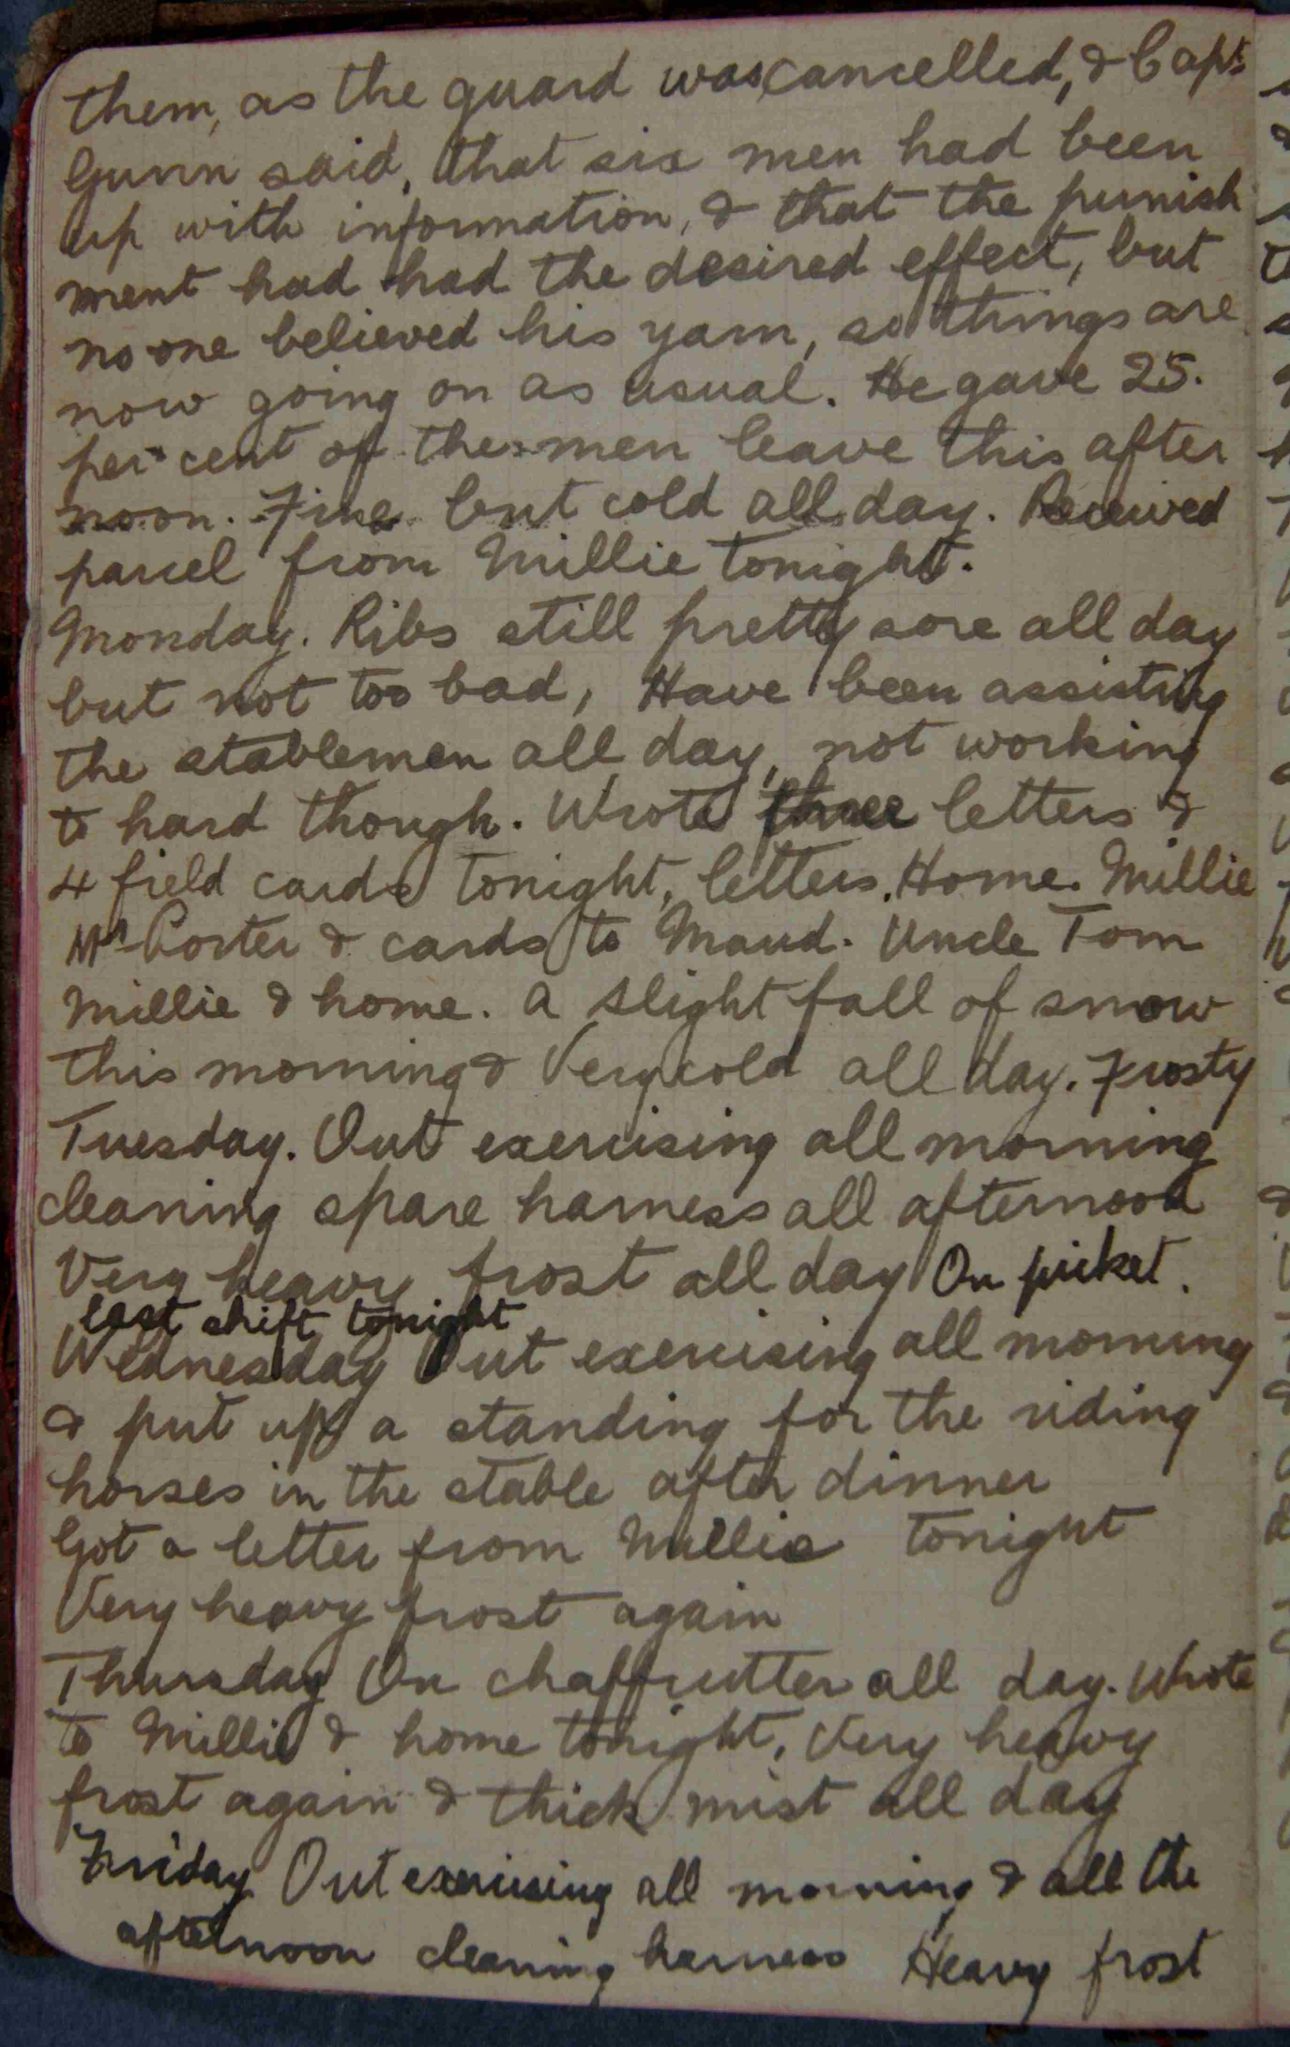 them, as the guard was cancelled, & Capt
Gunn said, that six men had been
up with information, & that the punish
ment had had the desired effect, but
no one believed his yarn, so things are
now going on as usual. He gave 25.
per cent of the men leave this after
noon. Fine but cold all day. Received
parcel from Millie tonight.
Monday. Ribs still pretty sore all day
but not too bad, Have been assisting
the stablemen all day, not working
to hard though. Wrote three letters &
4 field cards tonight, letters. Home. Millie
Mr Porter & cards to Maud. Uncle Tom
Millie & home. A slight fall of snow
this morning & Very cold all day. Frosty
Tuesday. Out exercising all morning
cleaning spare harness all afternoon
Very heavy frost all day On picket.
last shift tonight
Wednesday Out exercising all morning
& put up a standing for the riding
horses in the stable after dinner
Got a letter from Millie tonight
Very heavy frost again
Thursday On chaffcutter all day. Wrote
to Millie & home tonight, Very heavy
frost again & thick mist all day
Friday Out exercising all morning & all the
afternoon cleaning harness Heavy frost